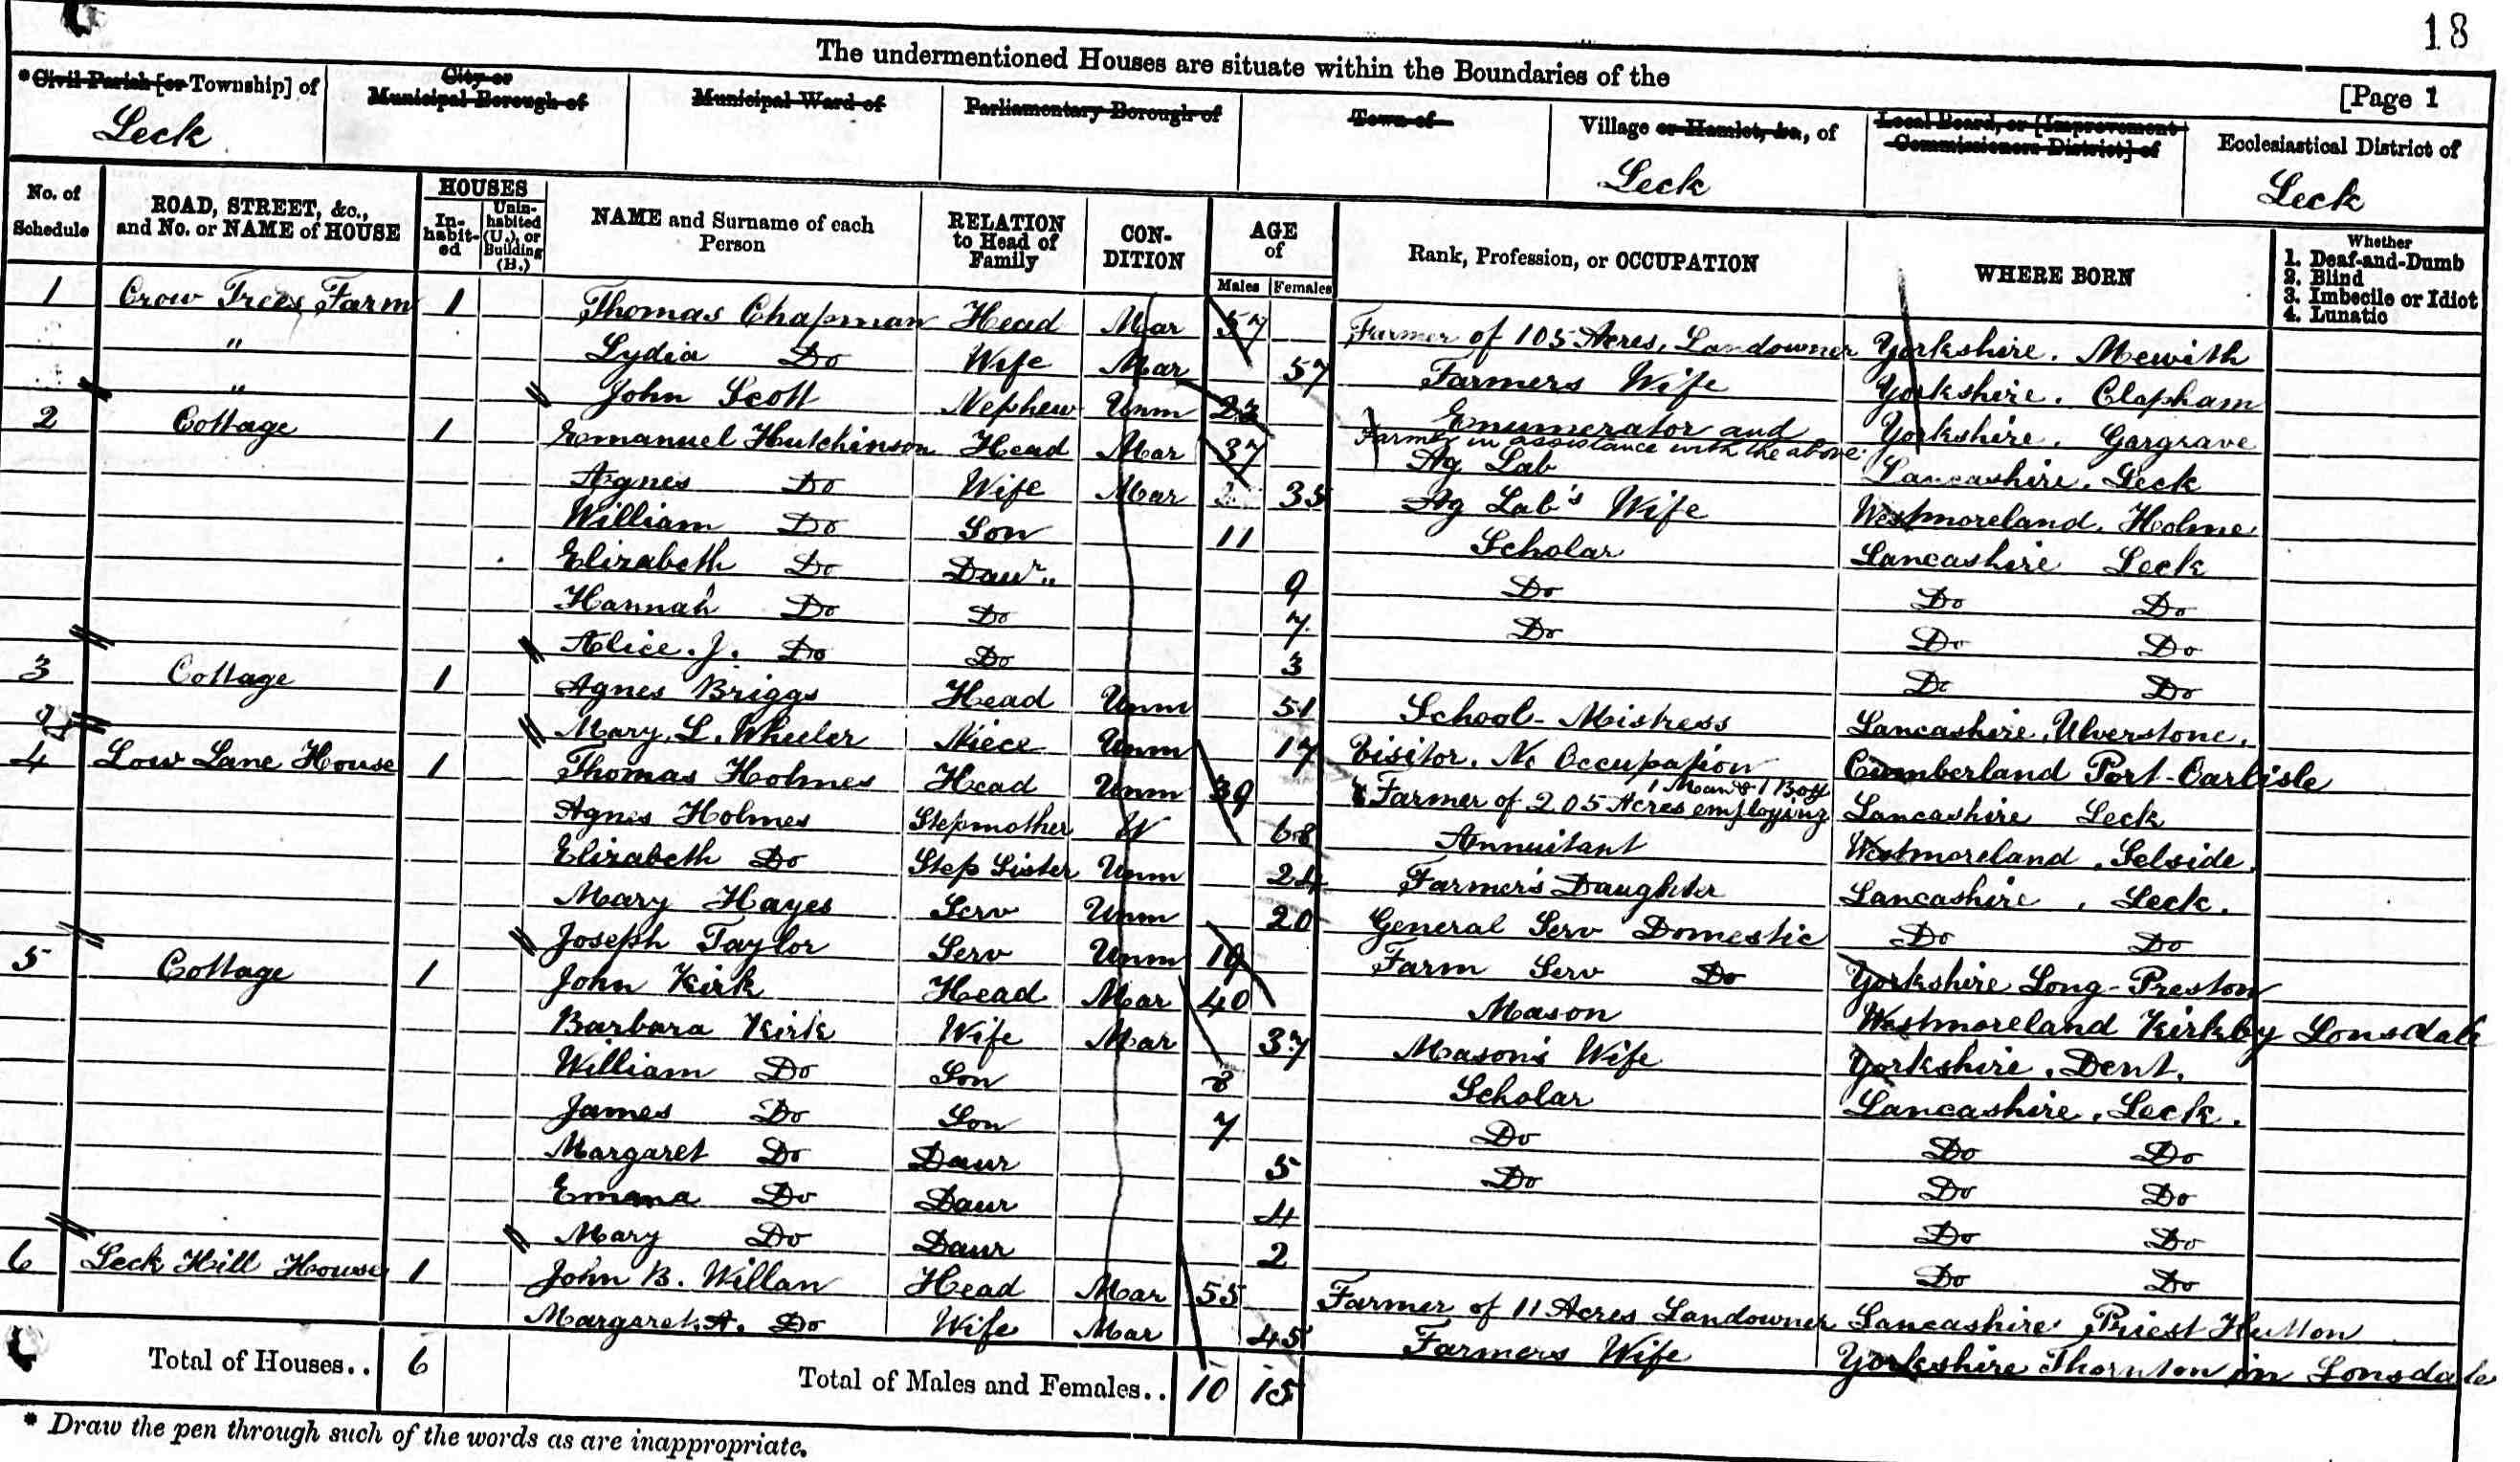 18
The undermentioned Houses are situate within the Boundaries of the
[Page 1
*Civil Parish [or Township] of Leck
City or Municipal Borough of
Municipal Ward of
Parliamentary Borough of
Town of
Village or Hamlet, &c., of Leck
Local Board, or [Improvement Commissioners District] of
Ecclesiastical District of Leck
No. of Schedule
ROAD, STREET, &c., and No. or NAME of HOUSE
HOUSES
In-habit-ed
Unin-habited (U.), or Building (B.)
NAME and Surname of each Person
RELATION to Head of Family
CON-DITION
AGE of
Males
Females
Rank, Profession, or OCCUPATION
WHERE BORN
Whether
1. Deaf-and-Dumb
2. Blind
3. Imbecile or Idiot
4. Lunatic
1 Crow Trees Farm 1 Thomas Chapman Head Mar 57 Farmer of 105 Acres, Landowner Yorkshire. Mewith
" Lydia Do Wife Mar 57 Farmers Wife Yorkshire. Clapham
" John Scott Nephew Unm 23 Enumerator and Farmer in assistance with the above. Yorkshire. Gargrave
2 Cottage 1 Emanuel Hutchinson Head Mar 37 Ag Lab Lancashire. Leck
Agnes Do Wife Mar 35 Ag Lab's Wife Westmoreland. Holme
William Do Son 11 Scholar Lancashire Leck
Elizabeth Do Daur.. 9 Do Do Do
Hannah Do Do 7 Do Do Do
Alice. J. Do Do 3 Do Do
3 Cottage 1 Agnes Briggs Head Unm 51 School-Mistress Lancashire, Ulverstone.
Mary. L. Wheeler Niece Unm 17 Visitor. No Occupation Cumberland Port-Carlisle
4 Low Lane House 1 Thomas Holmes Head Unm 39 Farmer of 205 Acres employing 1 Man & 1 Boy Lancashire Leck
Agnes Holmes Stepmother W 68 Annuitant Westmoreland, Selside.
Elizabeth Do Step Sister Unm 24 Farmer's Daughter Lancashire, Leck.
Mary Hayes Serv Unm 20 General Serv Domestic Do Do
Joseph Taylor Serv Unm 19 Farm Serv Do Yorkshire Long-Preston
5 Cottage 1 John Kirk Head Mar 40 Mason Westmoreland Kirkby Lonsdale
Barbara Kirk Wife Mar 37 Mason's Wife Yorkshire. Dent.
William Do Son 8 Scholar Lancashire. Leck.
James Do Son 7 Do Do Do
Margaret Do Daur 5 Do Do Do
Emma Do Daur 4 Do Do
Mary Do Daur 2 Do Do
6 Leck Hill House 1 John B. Willan Head Mar 55 Farmer of 11 Acres Landowner Lancashire Priest Hutton
Margaret. A. Do Wife Mar 45 Farmers Wife Yorkshire Thornton in Lonsdale
Total of Houses.. 6 Total of Males and Females.. 10 15
* Draw the pen through such of the words as are inappropriate.